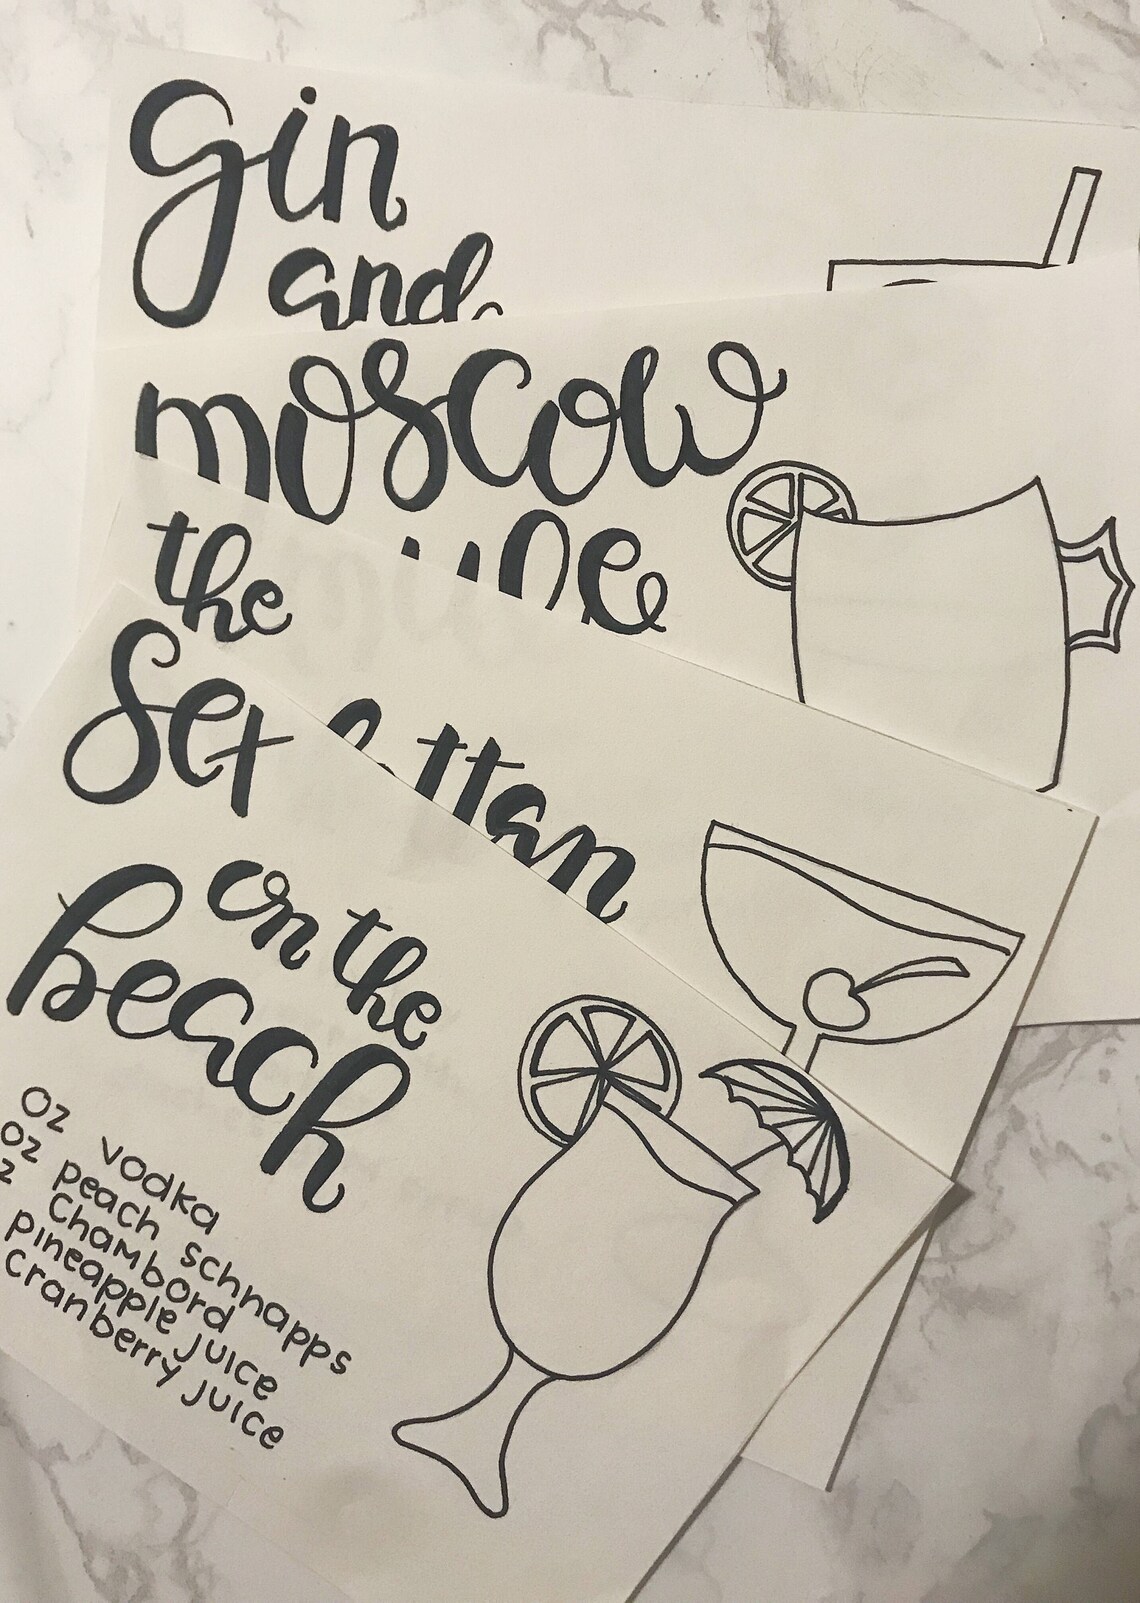 gin
and
moscow
the
Sex
on the
beach
oz vodka
oz peach schnapps
Chambord
pineapple juice
cranberry juice